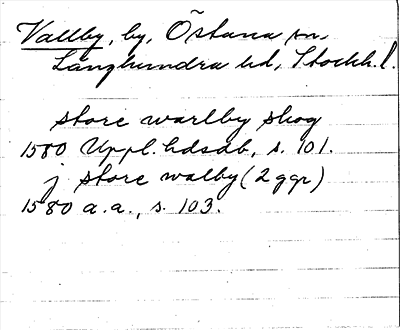 Vallby, by, Östuna sn,
Långhundra hd, Stockh. l.
store warlby skog
1580 Uppl. hdsdb, s. 101.
j store walby (2 ggr)
1580 a.a., s. 103.